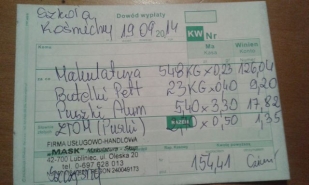 Szkoła
Kośmidry 19.09.2014
Dowód wypłaty
KW Nr
Wn Ma
Winien
Makulatura 548KG x 0,23 126,04
Butelki Pett 23KG x 0,40 9,20
Puszki Alum 5,40 x 3,30 17,82
ZŁOM (Puszki) x 0,50 1,35
FIRMA USŁUGOWO-HANDLOWA
"MASK" Makulatura - Skup
42-700 Lubliniec, ul. Oleska 20
tel. 0-697 828 013
154,41